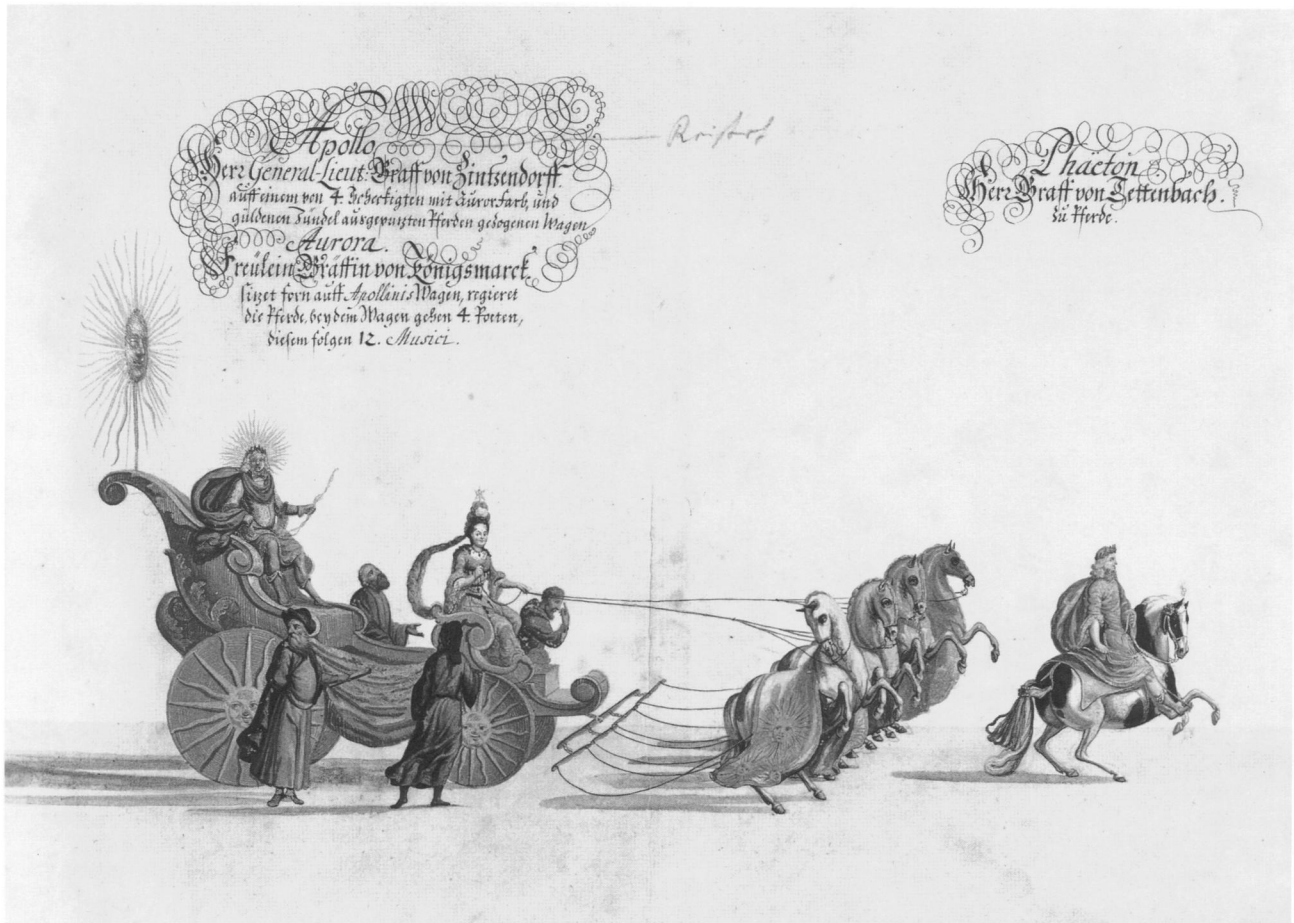 Apollo
Herr General-Lieut: Graff von Zintzendorff.
auff einem von 4. Scheckigten mit Aurorfarb, und
güldenen Zündel ausgeputzten Pferden gezogenen Wagen
Aurora.
Freülein Gräffin von Königsmarck.
sitzet forn auff Apollinis Wagen, regieret
die Pferde, bey dem Wagen gehen 4. Poeten,
diesem folgen 12. Musici.
Phaeton
Herr Graff von Tettenbach.
zu Pferde.